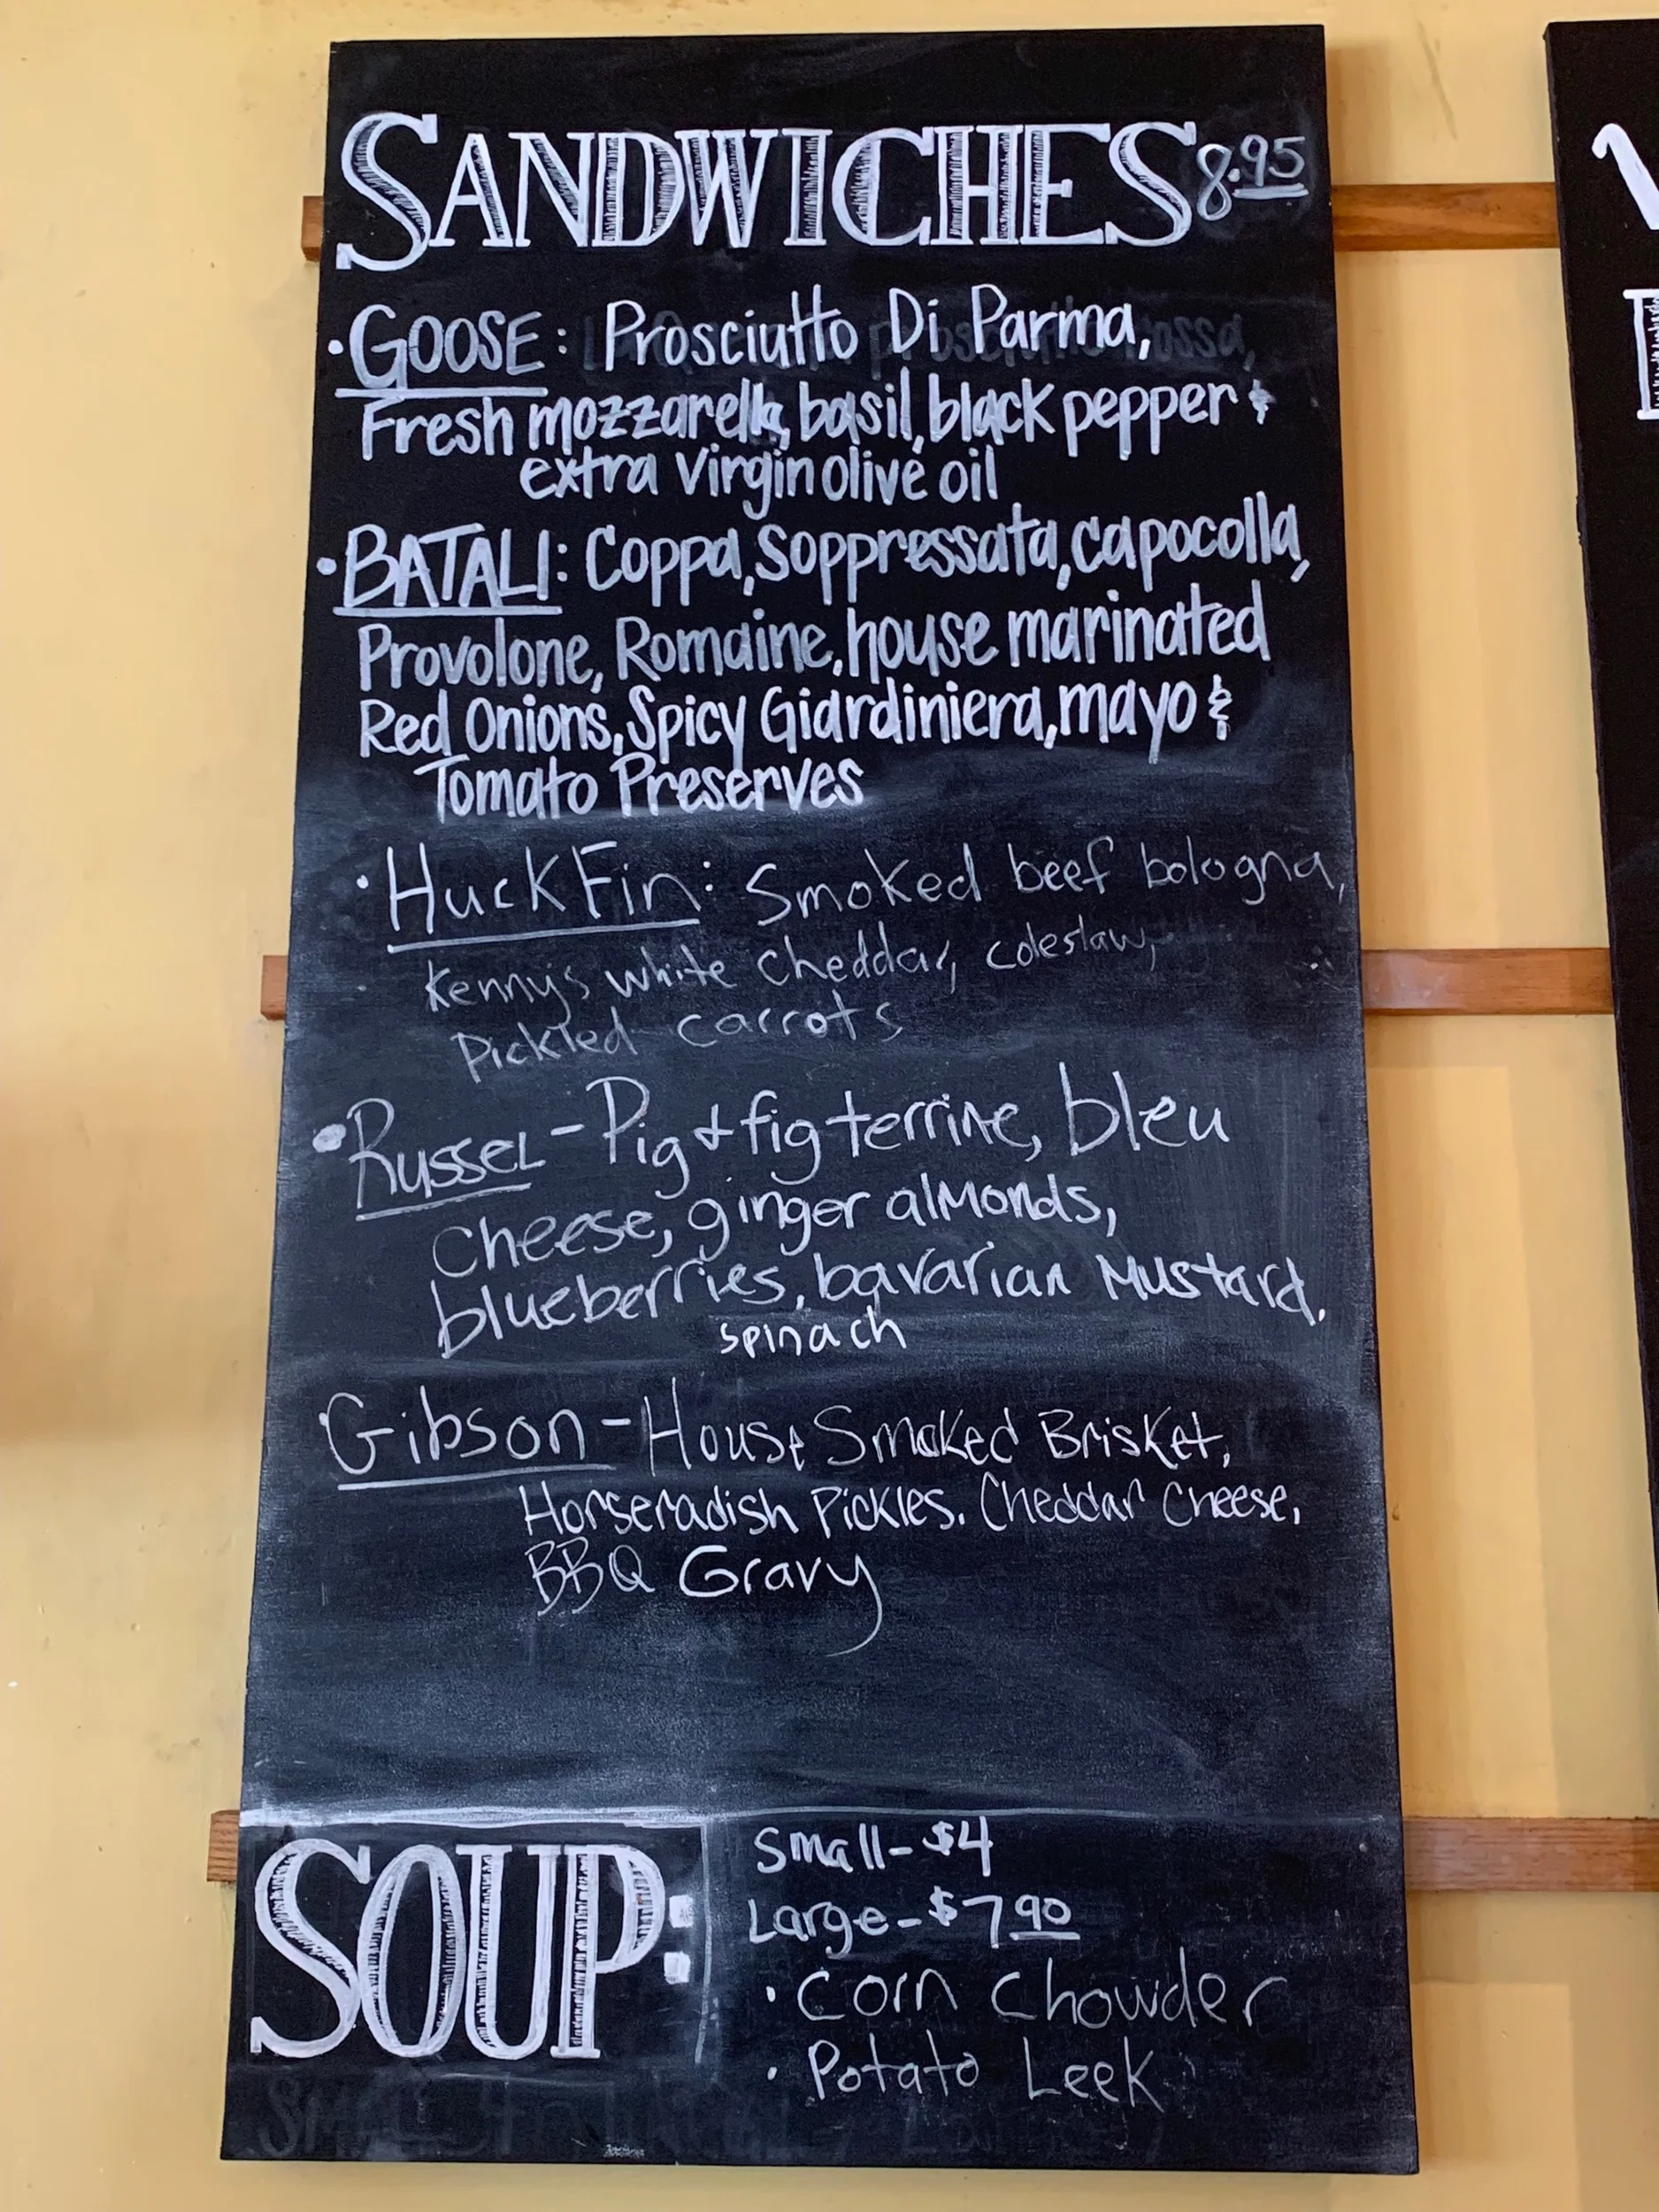 SANDWICHES 8.95
• GOOSE: Prosciutto Di Parma,
Fresh mozzarella, basil, black pepper &
extra virgin olive oil
• BATALI: Coppa, Soppressata, capocolla,
Provolone, Romaine, house marinated
Red Onions, Spicy Giardiniera, mayo &
Tomato Preserves
• Huck Fin: Smoked beef bologna,
Kenny's white cheddar, coleslaw,
Pickled carrots
• Russel - Pig & fig terrine, bleu
cheese, ginger almonds,
blueberries, bavarian Mustard,
spinach
Gibson - House Smoked Brisket,
Horseradish Pickles. Cheddar Cheese,
BBQ Gravy
SOUP:
Small - $4
Large - $7 90
• Corn Chowder
• Potato Leek